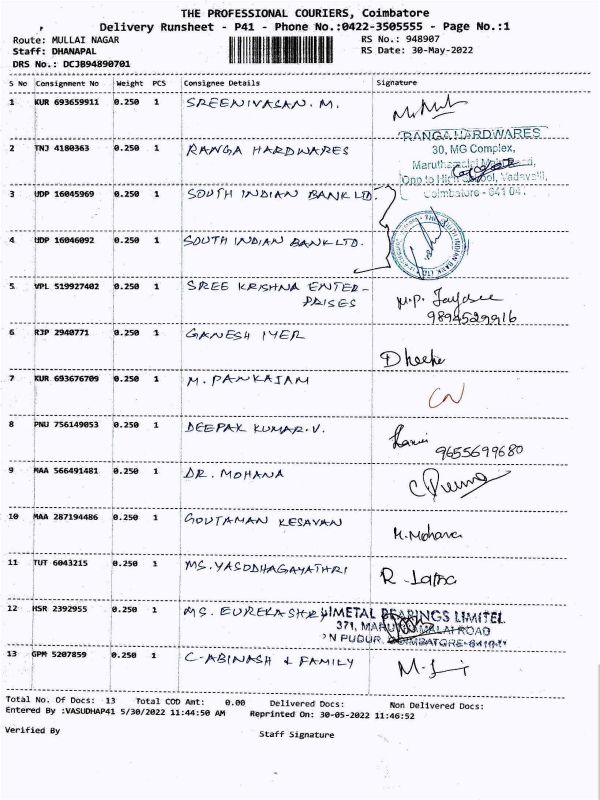 THE PROFESSIONAL COURIERS, Coimbatore
Delivery Runsheet - P41 - Phone No.:0422-3505555 - Page No.:1
Route: MULLAI NAGAR RS No.: 948907
Staff: DHANAPAL RS Date: 30-May-2022
DRS No.: DCJB94890701
S No Consignment No Weight PCS Consignee Details Signature
1 KUR 693659911 0.250 1 SREENIVASAN. M.
2 TNJ 4180363 0.250 1 RANGA HARDWARES
RANGA HARDWARES
30, MG Complex,
Coimbatore - 641 041.
3 UDP 16045969 0.250 1 SOUTH INDIAN BANK LTD.
4 UDP 16046092 0.250 1 SOUTH INDIAN BANK LTD.
5 VPL 519927402 0.250 1 SREE KRISHNA ENTER-
PRISES
9894529916
6 RJP 2940771 0.250 1 GANESH IYER
7 KUR 693676709 0.250 1 M. PANKAJAM
8 PNU 756149053 0.250 1 DEEPAK KUMAR.V.
9655699680
9 MAA 566491481 0.250 1 DR. MOHANA
10 MAA 287194486 0.250 1 GOUTAMAN KESAVAN
M.Mohana
11 TUT 6043215 0.250 1 MS.YASODHAGAYATHRI
R. Latha
12 HSR 2392955 0.250 1 MS. EUREKASHRI
IMETAL BEARINGS LIMITED
13 GPM 5207859 0.250 1 C-ABINASH & FAMILY
Total No. Of Docs: 13 Total COD Amt: 0.00 Delivered Docs: Non Delivered Docs:
Entered By :VASUDHAP41 5/30/2022 11:44:50 AM Reprinted On: 30-05-2022 11:46:52
Verified By Staff Signature